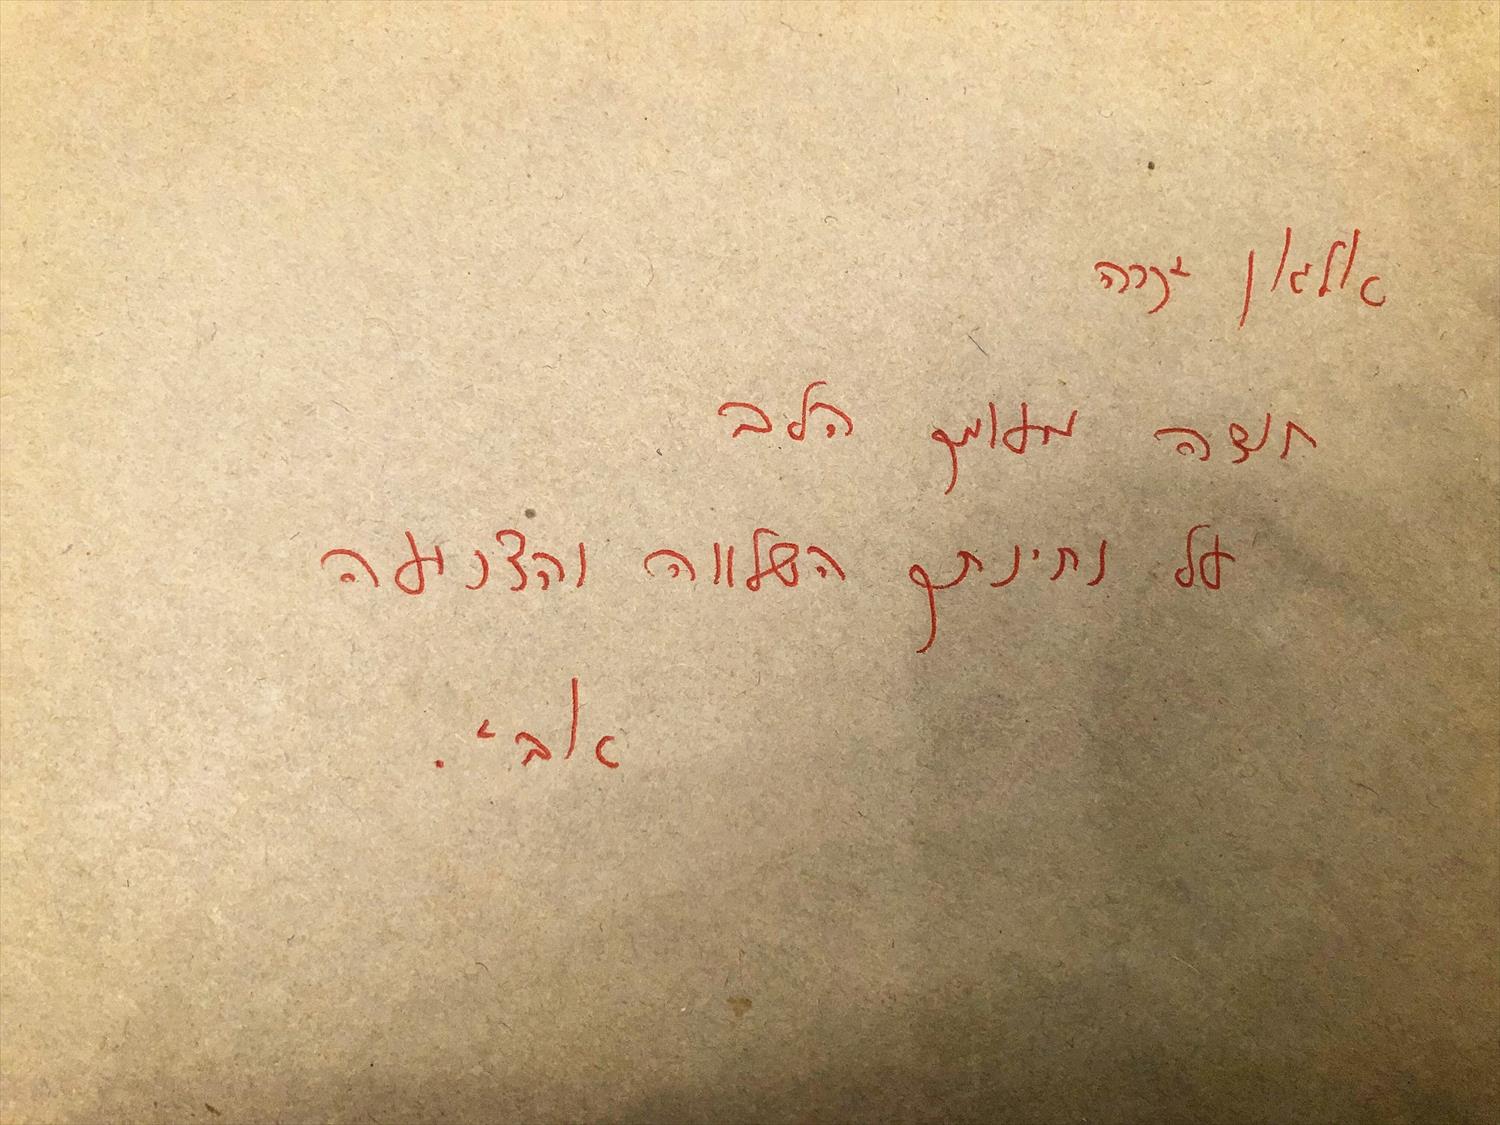 אלאן יקרה
תודה מעומק הלב
על נתינתך השלווה והצנועה
אבי.